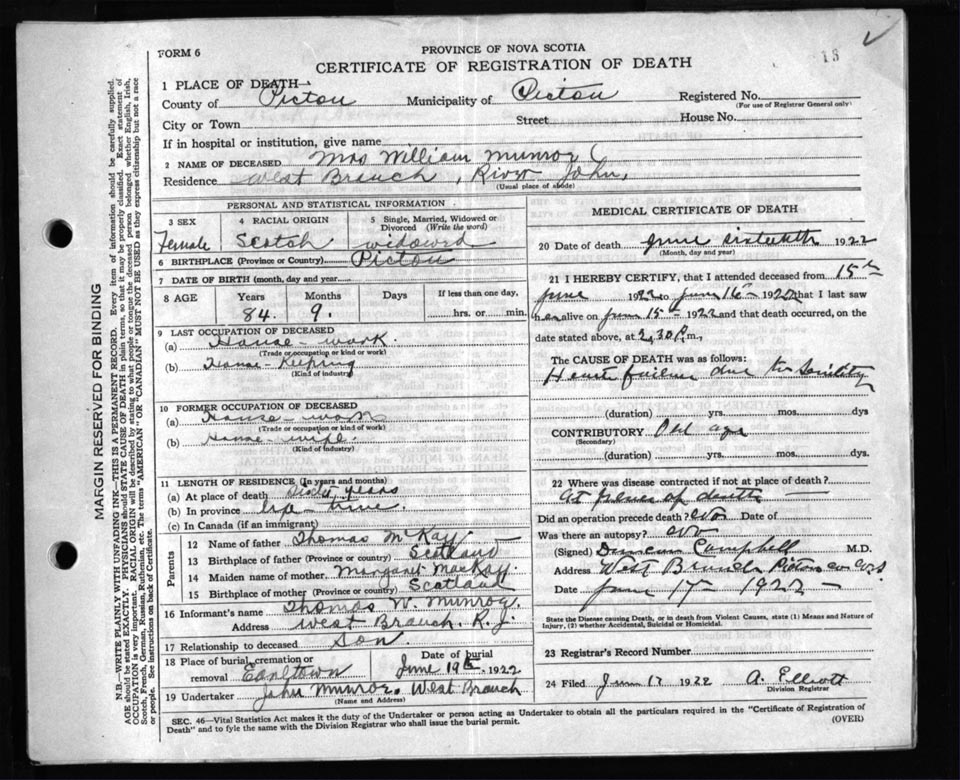 FORM 6
PROVINCE OF NOVA SCOTIA
CERTIFICATE OF REGISTRATION OF DEATH
13
1 PLACE OF DEATH—
County of Pictou Municipality of Pictou Registered No.
(For use of Registrar General only)
City or Town Street House No.
If in hospital or institution, give name
2 NAME OF DECEASED Mrs William Munroe
Residence West Branch, River John,
(Usual place of abode)
PERSONAL AND STATISTICAL INFORMATION
3 SEX 4 RACIAL ORIGIN 5 Single, Married, Widowed or Divorced (Write the word)
Female Scotch widowed
6 BIRTHPLACE (Province or Country) Pictou
7 DATE OF BIRTH (month, day and year)
8 AGE Years Months Days If less than one day,
84. 9. hrs. or min.
9 LAST OCCUPATION OF DECEASED
(a) House-work.
(Trade or occupation or kind or work)
(b) House-Keeping
(Kind of industry)
10 FORMER OCCUPATION OF DECEASED
(a) House-work
(Trade or occupation or kind or work)
(b) House-wife.
(Kind of industry)
11 LENGTH OF RESIDENCE (In years and months)
(a) At place of death years
(b) In province life-time.
(c) In Canada (if an immigrant)
Parents
12 Name of father Thomas McKay
13 Birthplace of father (Province or country) Scotland
14 Maiden name of mother Margaret MacKay.
15 Birthplace of mother (Province or country) Scotland
16 Informant's name Thomas W. Munroy.
Address West Branch. R. J.
17 Relationship to deceased Son.
18 Place of burial, cremation or removal Earltown Date of burial June 19th 1922
19 Undertaker John Munroe. West Branch
(Name and Address)
MEDICAL CERTIFICATE OF DEATH
20 Date of death June sixteenth 1922
(Month, day and year)
21 I HEREBY CERTIFY, that I attended deceased from 15th
June 1922 to June 16th 1922 that I last saw
her alive on June 15th 1922 and that death occurred, on the
date stated above, at 2,30 P.m.,
The CAUSE OF DEATH was as follows:
Heart failure due to Senility
(duration) yrs. mos. dys
CONTRIBUTORY Old age
(Secondary)
(duration) yrs. mos. dys.
22 Where was disease contracted if not at place of death?
At place of death
Did an operation precede death? No Date of
Was there an autopsy? No
(Signed) Duncan Campbell M.D.
Address West Branch Pictou co N.S
Date June 17th 1922
State the Disease causing Death, or in death from Violent Causes, state (1) Means and Nature of
Injury, (2) whether Accidental, Suicidal or Homicidal.
23 Registrar's Record Number
24 Filed June 17 1922 A. Elliott
Division Registrar
SEC. 46—Vital Statistics Act makes it the duty of the Undertaker or person acting as Undertaker to obtain all the particulars required in the "Certificate of Registration of
Death" and to fyle the same with the Division Registrar who shall issue the burial permit.
(OVER)
MARGIN RESERVED FOR BINDING
N.B.—WRITE PLAINLY WITH UNFADING INK—THIS IS A PERMANENT RECORD. Every item of information should be carefully supplied.
AGE should be stated EXACTLY. PHYSICIANS should STATE CAUSE OF DEATH in plain terms, so that it may be properly classified. Exact statement of
OCCUPATION is very important. RACIAL ORIGIN will be described by stating to what people or tongue the deceased person belonged whether English, Irish,
Scotch, French, German, Russian, Ruthenian, etc. The terms "AMERICAN" OR "CANADIAN" MUST NOT BE USED as they express citizenship but not a race
or people. See instructions on back of Certificate.